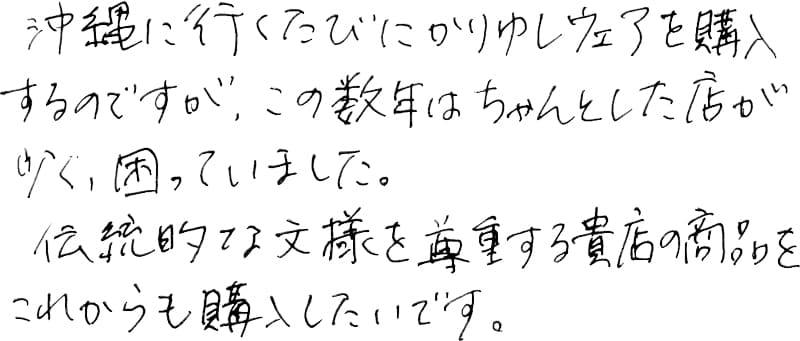 沖縄に行くたびにかりゆしウェアを購入
するのですが、この数年はちゃんとした店が
少く、困っていました。
伝統的な文様を尊重する貴店の商品を
これからも購入したいです。